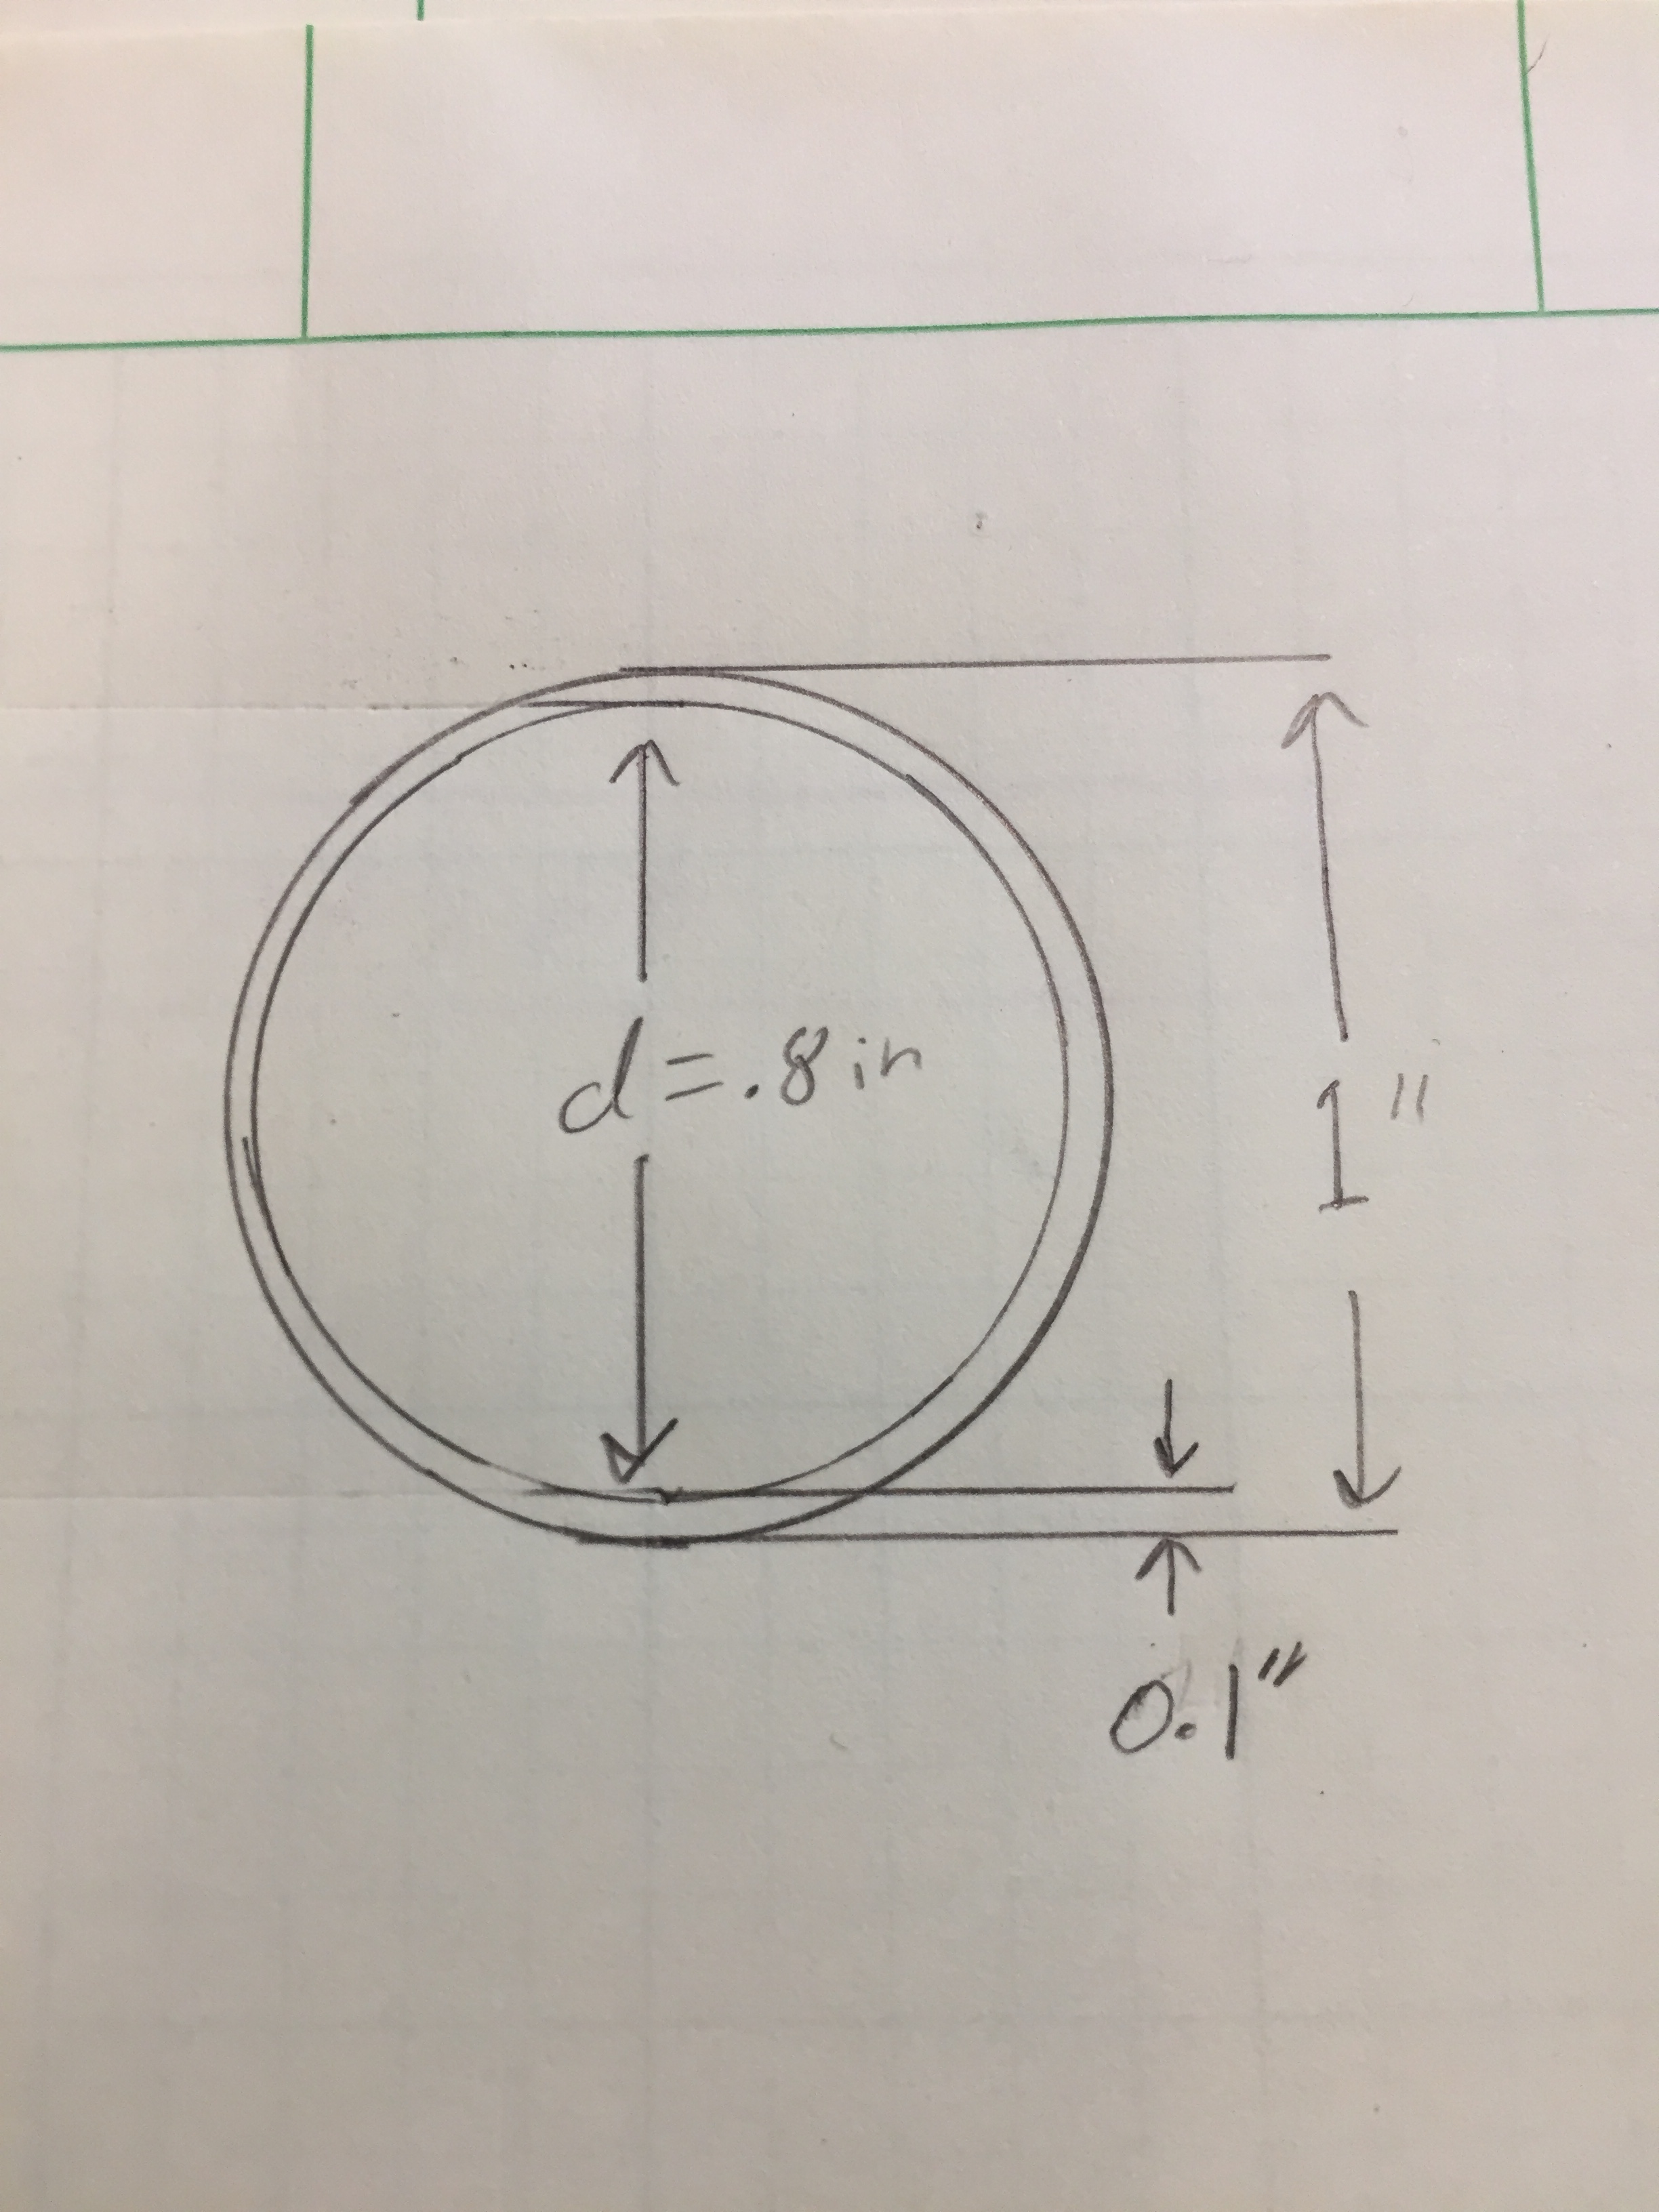 d=.8in
1"
0.1"